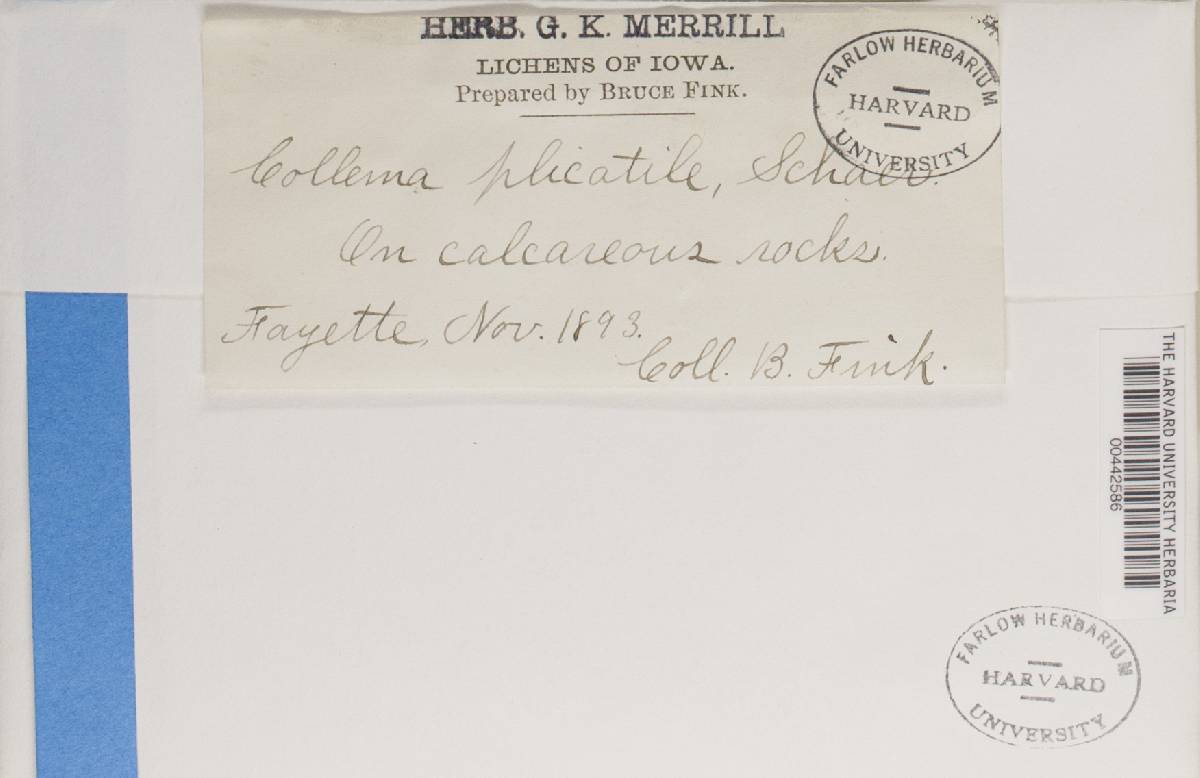 HERB. G. K. MERRILL
LICHENS OF IOWA.
Prepared by BRUCE FINK.
FARLOW HERBARIUM
HARVARD
UNIVERSITY
Collema plicatile, Schaer.
On calcareous rocks.
Fayette, Nov. 1893.
Coll. B. Fink.
THE HARVARD UNIVERSITY HERBARIA
00442586
FARLOW HERBARIUM
HARVARD
UNIVERSITY